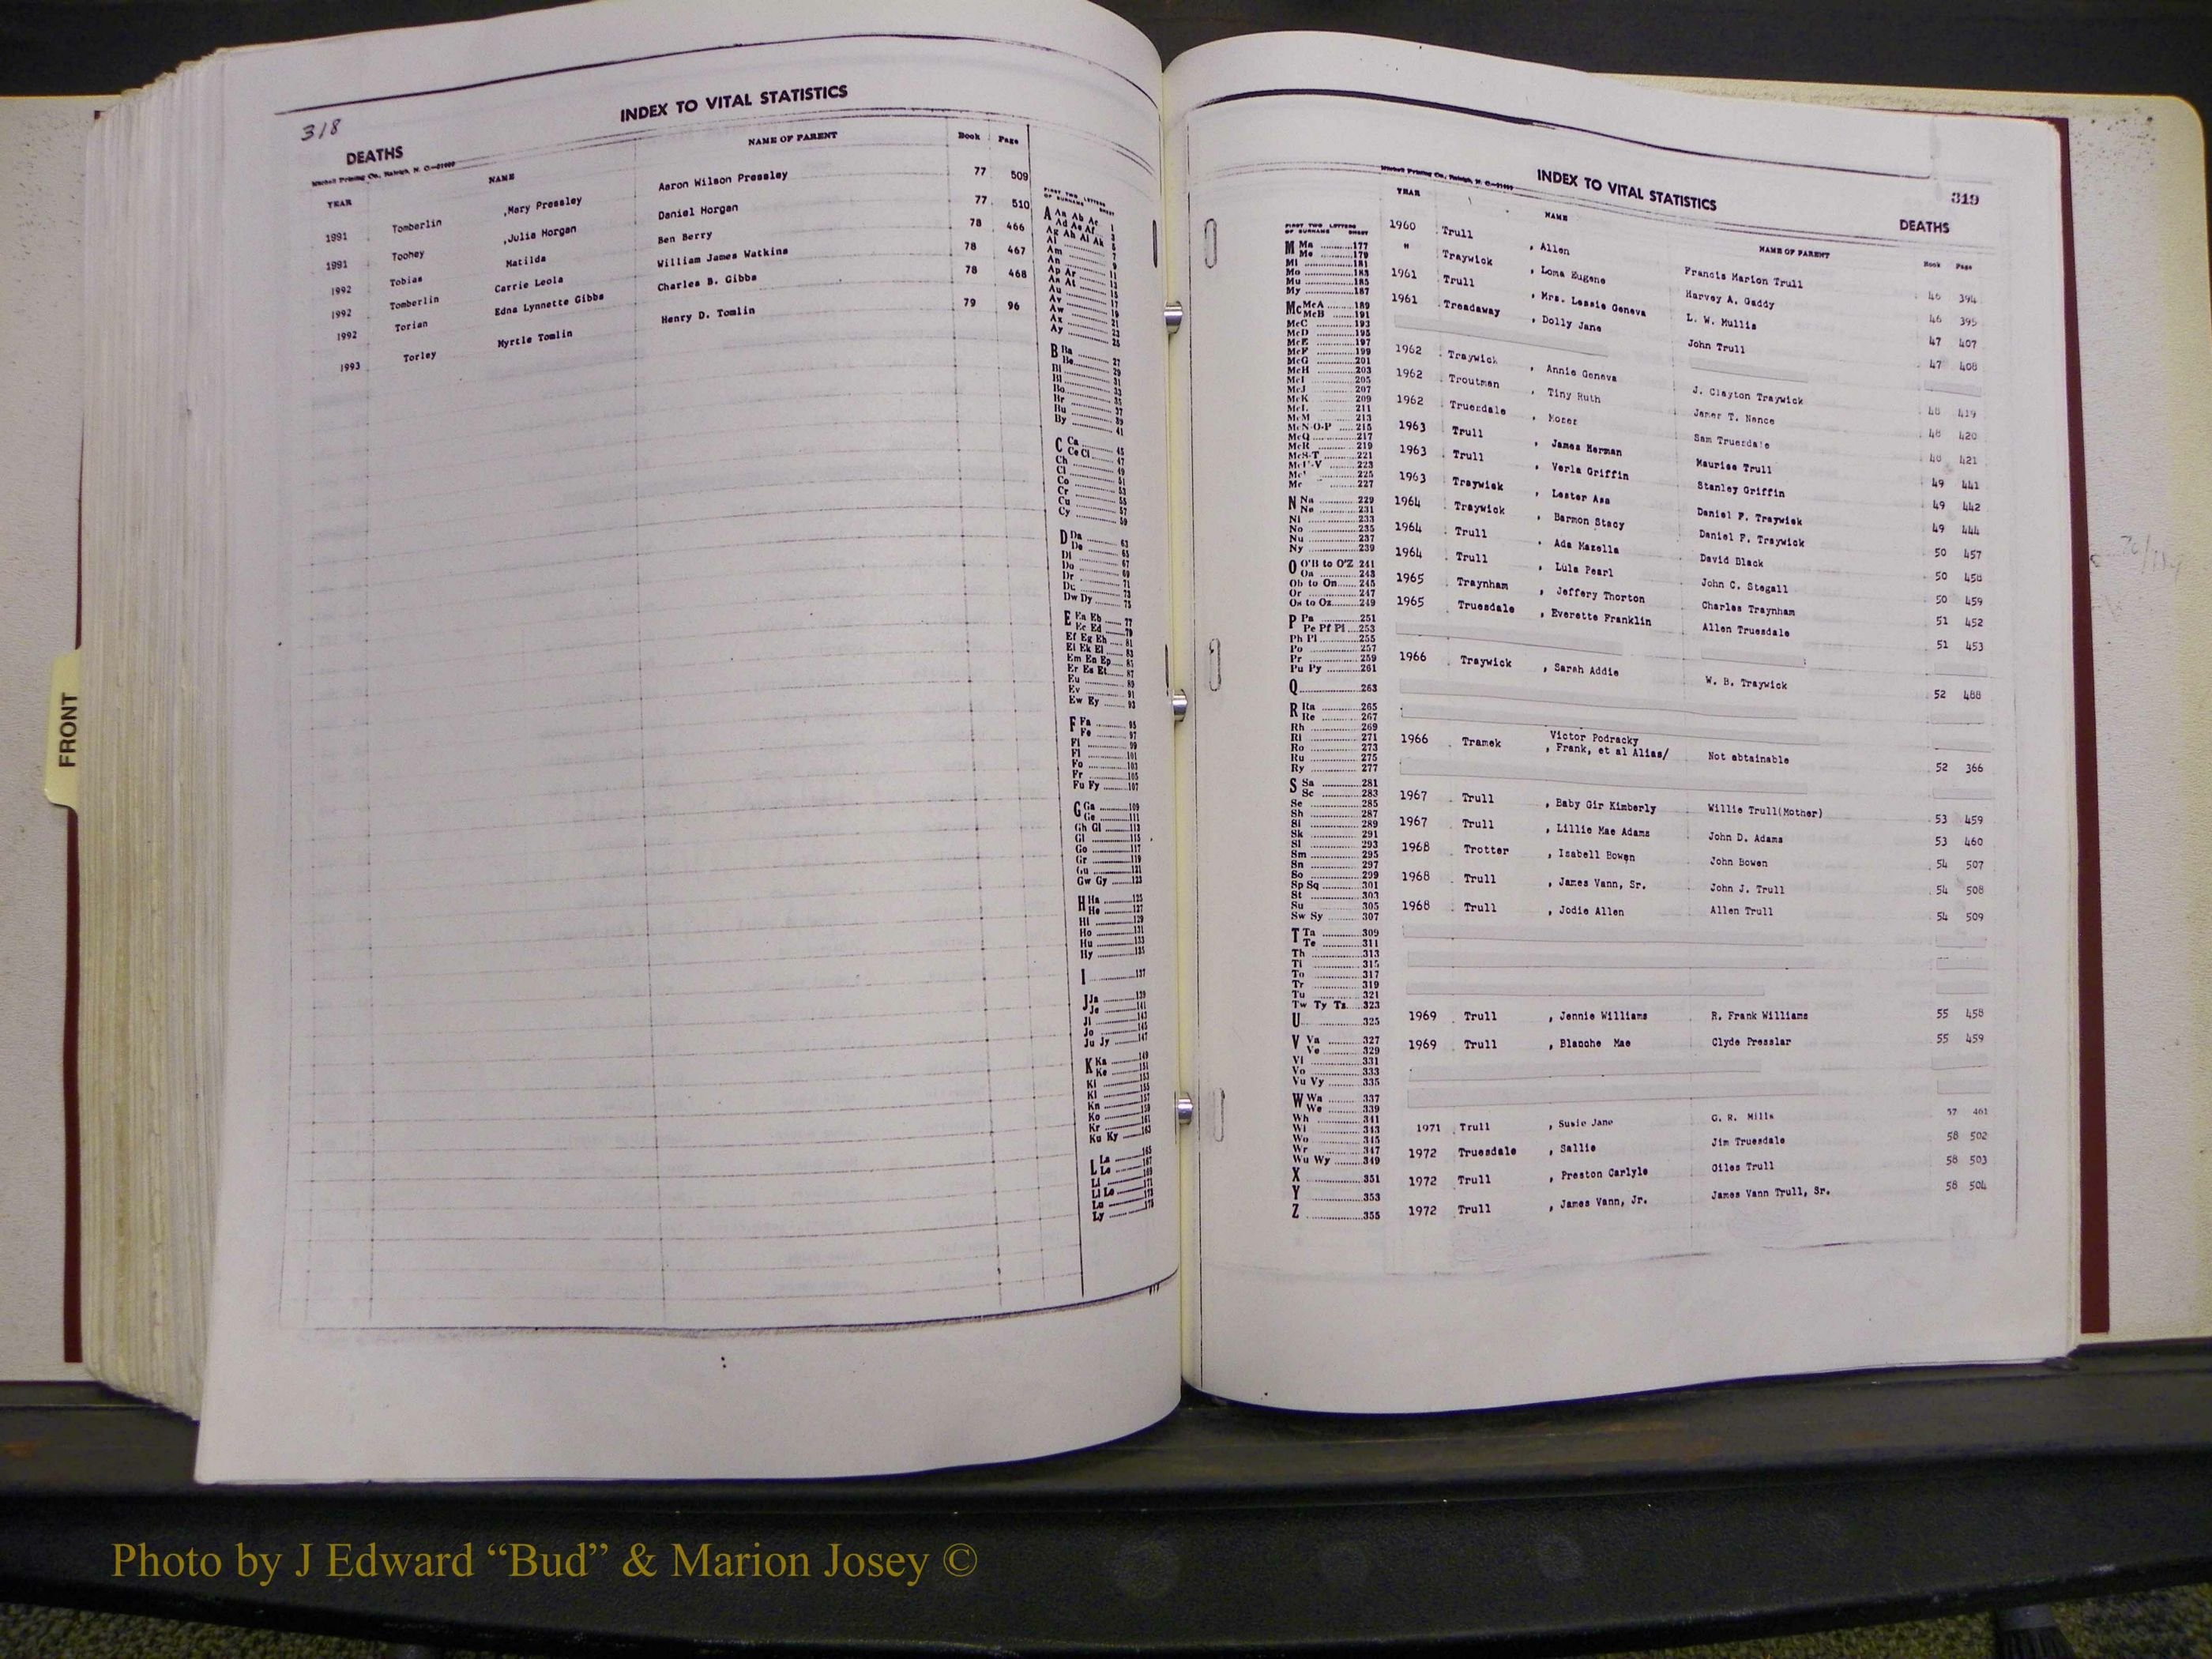 318
INDEX TO VITAL STATISTICS
DEATHS
Mitchell Printing Co., Raleigh, N. C.
YEAR NAME NAME OF PARENT Book Page
1991 Tomberlin ,Mary Pressley Aaron Wilson Pressley 77 509
1991 Toohey ,Julia Horgan Daniel Horgan 77 510
1992 Tobias Matilda Ben Berry 78 466
1992 Tomberlin Carrie Leola William James Watkins 78 467
1992 Torian Edna Lynnette Gibbs Charles B. Gibbs 78 468
1993 Torley Myrtle Tomlin Henry D. Tomlin 79 96
FIRST TWO LETTERS
OF SURNAME SHEET
A Aa Ab Ac 1
Ad Ae Af 3
Ag Ah Ai Ak 5
Al 7
Am 9
An 11
Ap Ar 13
As At 15
Au 17
Av 19
Aw 21
Ax 23
Ay 25
B Ba 27
Be 29
Bi 31
Bl 33
Bo 35
Br 37
Bu 39
By 41
C Ca 45
Ce Ci 47
Ch 49
Cl 51
Co 53
Cr 55
Cu 57
Cy 59
D Da 63
De 65
Di 67
Do 69
Dr 71
Du 73
Dw Dy 75
E Ea Eb 77
Ec Ed 79
Ef Eg Eh 81
Ei Ek El 83
Em En Ep 85
Er Es Et 87
Eu 89
Ev 91
Ew Ey 93
F Fa 95
Fe 97
Fi 99
Fl 101
Fo 103
Fr 105
Fu Fy 107
G Ga 109
Ge 111
Gh Gi 113
Gl 115
Go 117
Gr 119
Gu 121
Gw Gy 123
H Ha 125
He 127
Hi 129
Ho 131
Hu 133
Hy 135
I 137
J Ja 139
Je 141
Ji 143
Jo 145
Ju Jy 147
K Ka 149
Ke 151
Ki 153
Kl 155
Kn 157
Ko 159
Kr 161
Ku Ky 163
L La 165
Le 167
Li 169
Ll Lo 171
Lu 173
Ly 175
FRONT
Mitchell Printing Co., Raleigh, N. C.
INDEX TO VITAL STATISTICS
319
DEATHS
YEAR NAME NAME OF PARENT Book Page
1960 Trull , Allen Francis Marion Trull 46 394
" Traywick , Loma Eugene Harvey A. Gaddy 46 395
1961 Trull , Mrs. Lessie Geneva L. W. Mullis 47 407
1961 Treadaway , Dolly Jane John Trull 47 408
1962 Traywick , Annie Geneva J. Clayton Traywick 48 419
1962 Troutman , Tiny Ruth T. Nance 48 420
1962 Truesdale , Moses Sam Truesdale 48 421
1963 Trull , James Herman Maurice Trull 49 441
1963 Trull , Verla Griffin Stanley Griffin 49 442
1963 Traywick , Lester Asa Daniel F. Traywick 49 444
1964 Traywick , Barmon Stacy Daniel F. Traywick 50 457
1964 Trull , Ada Mazella David Black 50 458
1964 Trull , Lula Pearl John C. Stegall 50 459
1965 Traynham , Jeffery Thorton Charles Traynham 51 452
1965 Truesdale , Everette Franklin Allen Truesdale 51 453
1966 Traywick , Sarah Addie W. B. Traywick 52 488
Victor Podracky
1966 Tramek , Frank, et al Alias/ Not obtainable 52 366
1967 Trull , Baby Gir Kimberly Willie Trull(Mother) 53 459
1967 Trull , Lillie Mae Adams John D. Adams 53 460
1968 Trotter , Isabell Bowen John Bowen 54 507
1968 Trull , James Vann, Sr. John J. Trull 54 508
1968 Trull , Jodie Allen Allen Trull 54 509
1969 Trull , Jennie Williams R. Frank Williams 55 458
1969 Trull , Blanche Mae Clyde Presslar 55 459
1971 Trull , Susie Jane G. R. Mills 57 461
1972 Truesdale , Sallie Jim Truesdale 58 502
1972 Trull , Preston Carlyle Giles Trull 58 503
1972 Trull , James Vann, Jr. James Vann Trull, Sr. 58 504
FIRST TWO LETTERS
OF SURNAME SHEET
M Ma 177
Me 179
Mi 181
Mo 183
Mu 185
My 187
Mc McA 189
McB 191
McC 193
McD 195
McE 197
McF 199
McG 201
McH 203
McI 205
McJ 207
McK 209
McL 211
McM 213
McN-O-P 215
McQ 217
McR 219
McS-T 221
McU-V 223
225
227
N Na 229
Ne 231
Ni 233
No 235
Nu 237
Ny 239
O O'B to O'Z 241
Oa 243
Ob to On 245
Or 247
Os to Oz 249
P Pa 251
Pe Pf Pi 253
Ph Pl 255
Po 257
Pr 259
Pu Py 261
Q 263
R Ra 265
Re 267
Rh 269
Ri 271
Ro 273
Ru 275
Ry 277
S Sa 281
Sc 283
Se 285
Sh 287
Si 289
Sk 291
Sl 293
Sm 295
Sn 297
So 299
Sp Sq 301
St 303
Su 305
Sw Sy 307
T Ta 309
Te 311
Th 313
Ti 315
To 317
Tr 319
Tu 321
Tw Ty Tz 323
U 325
V Va 327
Ve 329
Vi 331
Vo 333
Vu Vy 335
W Wa 337
We 339
Wh 341
Wi 343
Wo 345
Wr 347
Wu Wy 349
X 351
Y 353
Z 355
Photo by J Edward “Bud” & Marion Josey ©